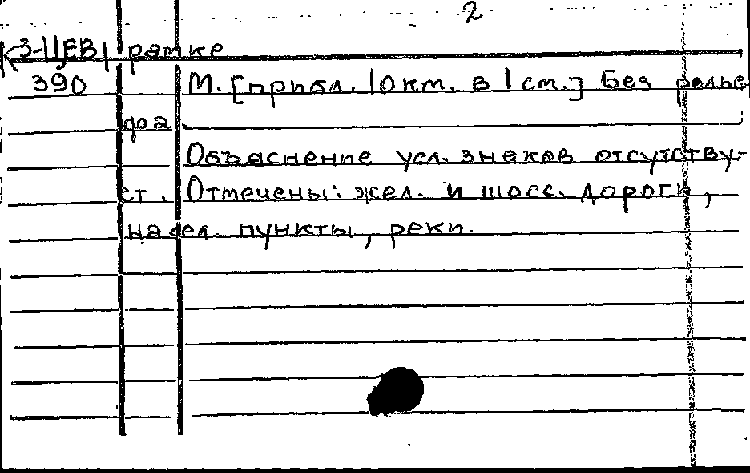 2
К3-ЦЕВ рамке
390 М. [прибл. 10км. в 1см.] Без релье-
фа
Объяснение усл. знаков отсутству-
ет. Отмечены: жел. и шосс. дороги,
насел. пункты, реки.